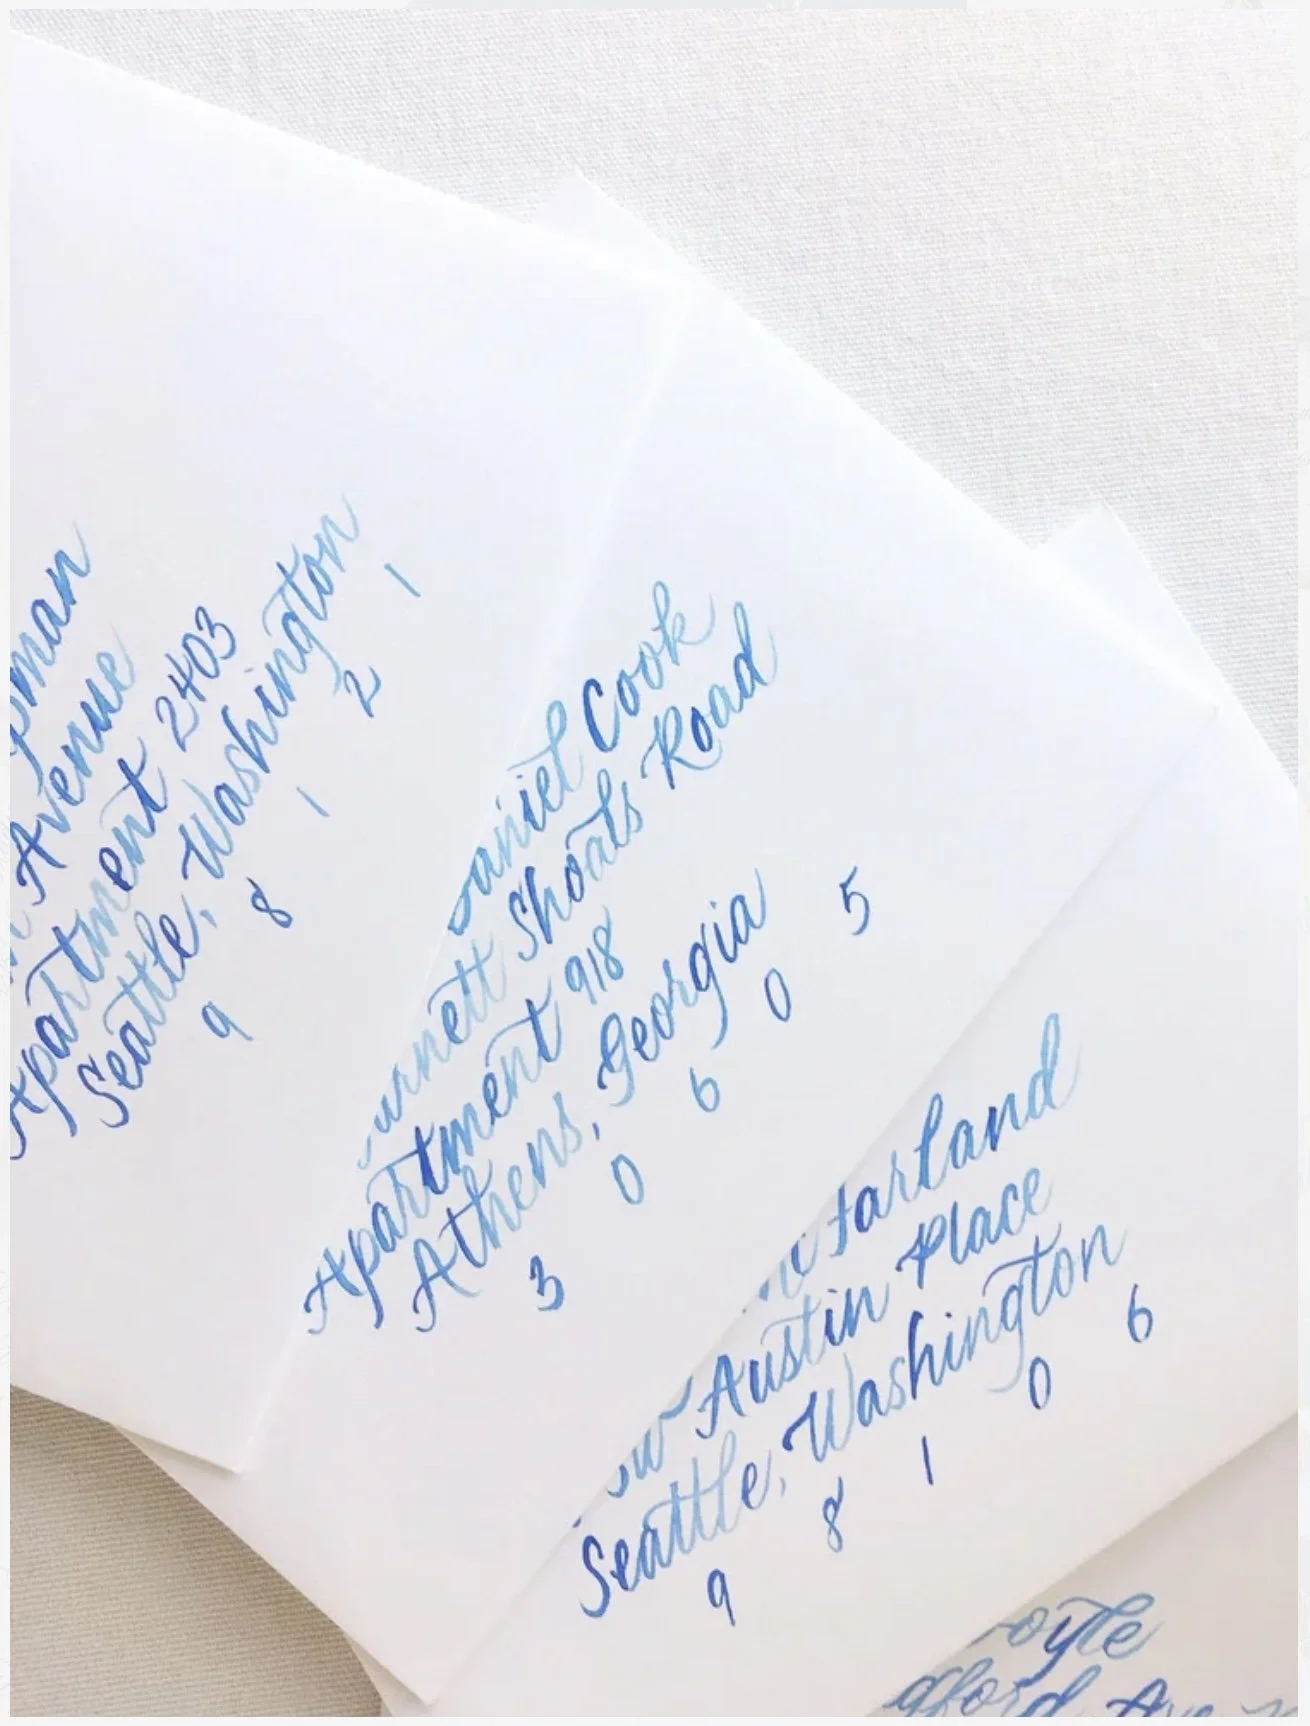 Avenue
Apartment 2403
Seattle, Washington
9 8 1 2 1
Daniel Cook
Shoals Road
Apartment 918
Athens, Georgia
3 0 6 0 5
Farland
Austin Place
Seattle, Washington
9 8 1 0 6